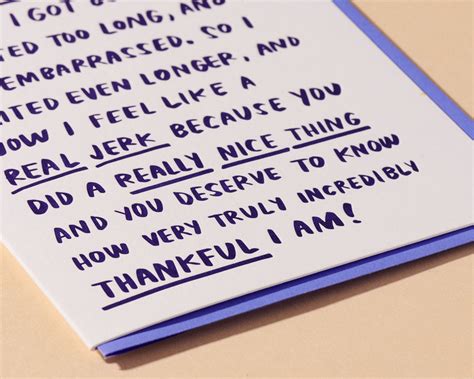 I GOT
TOO LONG, AND
EMBARRASSED. SO I
EVEN LONGER, AND
I FEEL LIKE A
REAL JERK BECAUSE YOU
DID A REALLY NICE THING
AND YOU DESERVE TO KNOW
HOW VERY TRULY INCREDIBLY
THANKFUL I AM!